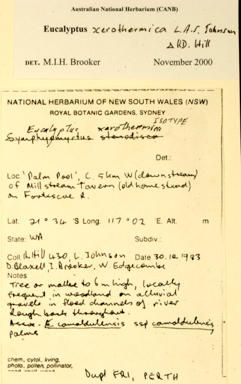 Australian National Herbarium (CANB)
Eucalyptus xerothermica L.A.S. Johnson
& K.D. Hill
DET. M.I.H. Brooker November 2000
NATIONAL HERBARIUM OF NEW SOUTH WALES (NSW)
ROYAL BOTANIC GARDENS, SYDNEY
ISOTYPE
Eucalyptus xerothermica
Det.:
Loc 'Palm Pool', c. 5 km W (downstream)
of Millstream Tavern (old homestead)
on Fortescue R.
Lat. 21° 34 'S Long. 117° 02 'E. Alt. m
State: WA Subdiv.:
Coll. K. Hill 430, L. Johnson Date 30.10.1983
D. Blaxell, I. Brooker, W. Edgecombe
Notes
Tree or mallee to 6 m high, locally
frequent in woodland on alluvial
gravels in flood channels of river
Rough bark throughout.
Assoc. E. camaldulensis ssp camaldulensis,
palms
chem, cytol, living,
photo, pollen, pollinator,
Dupl FRI, PERTH